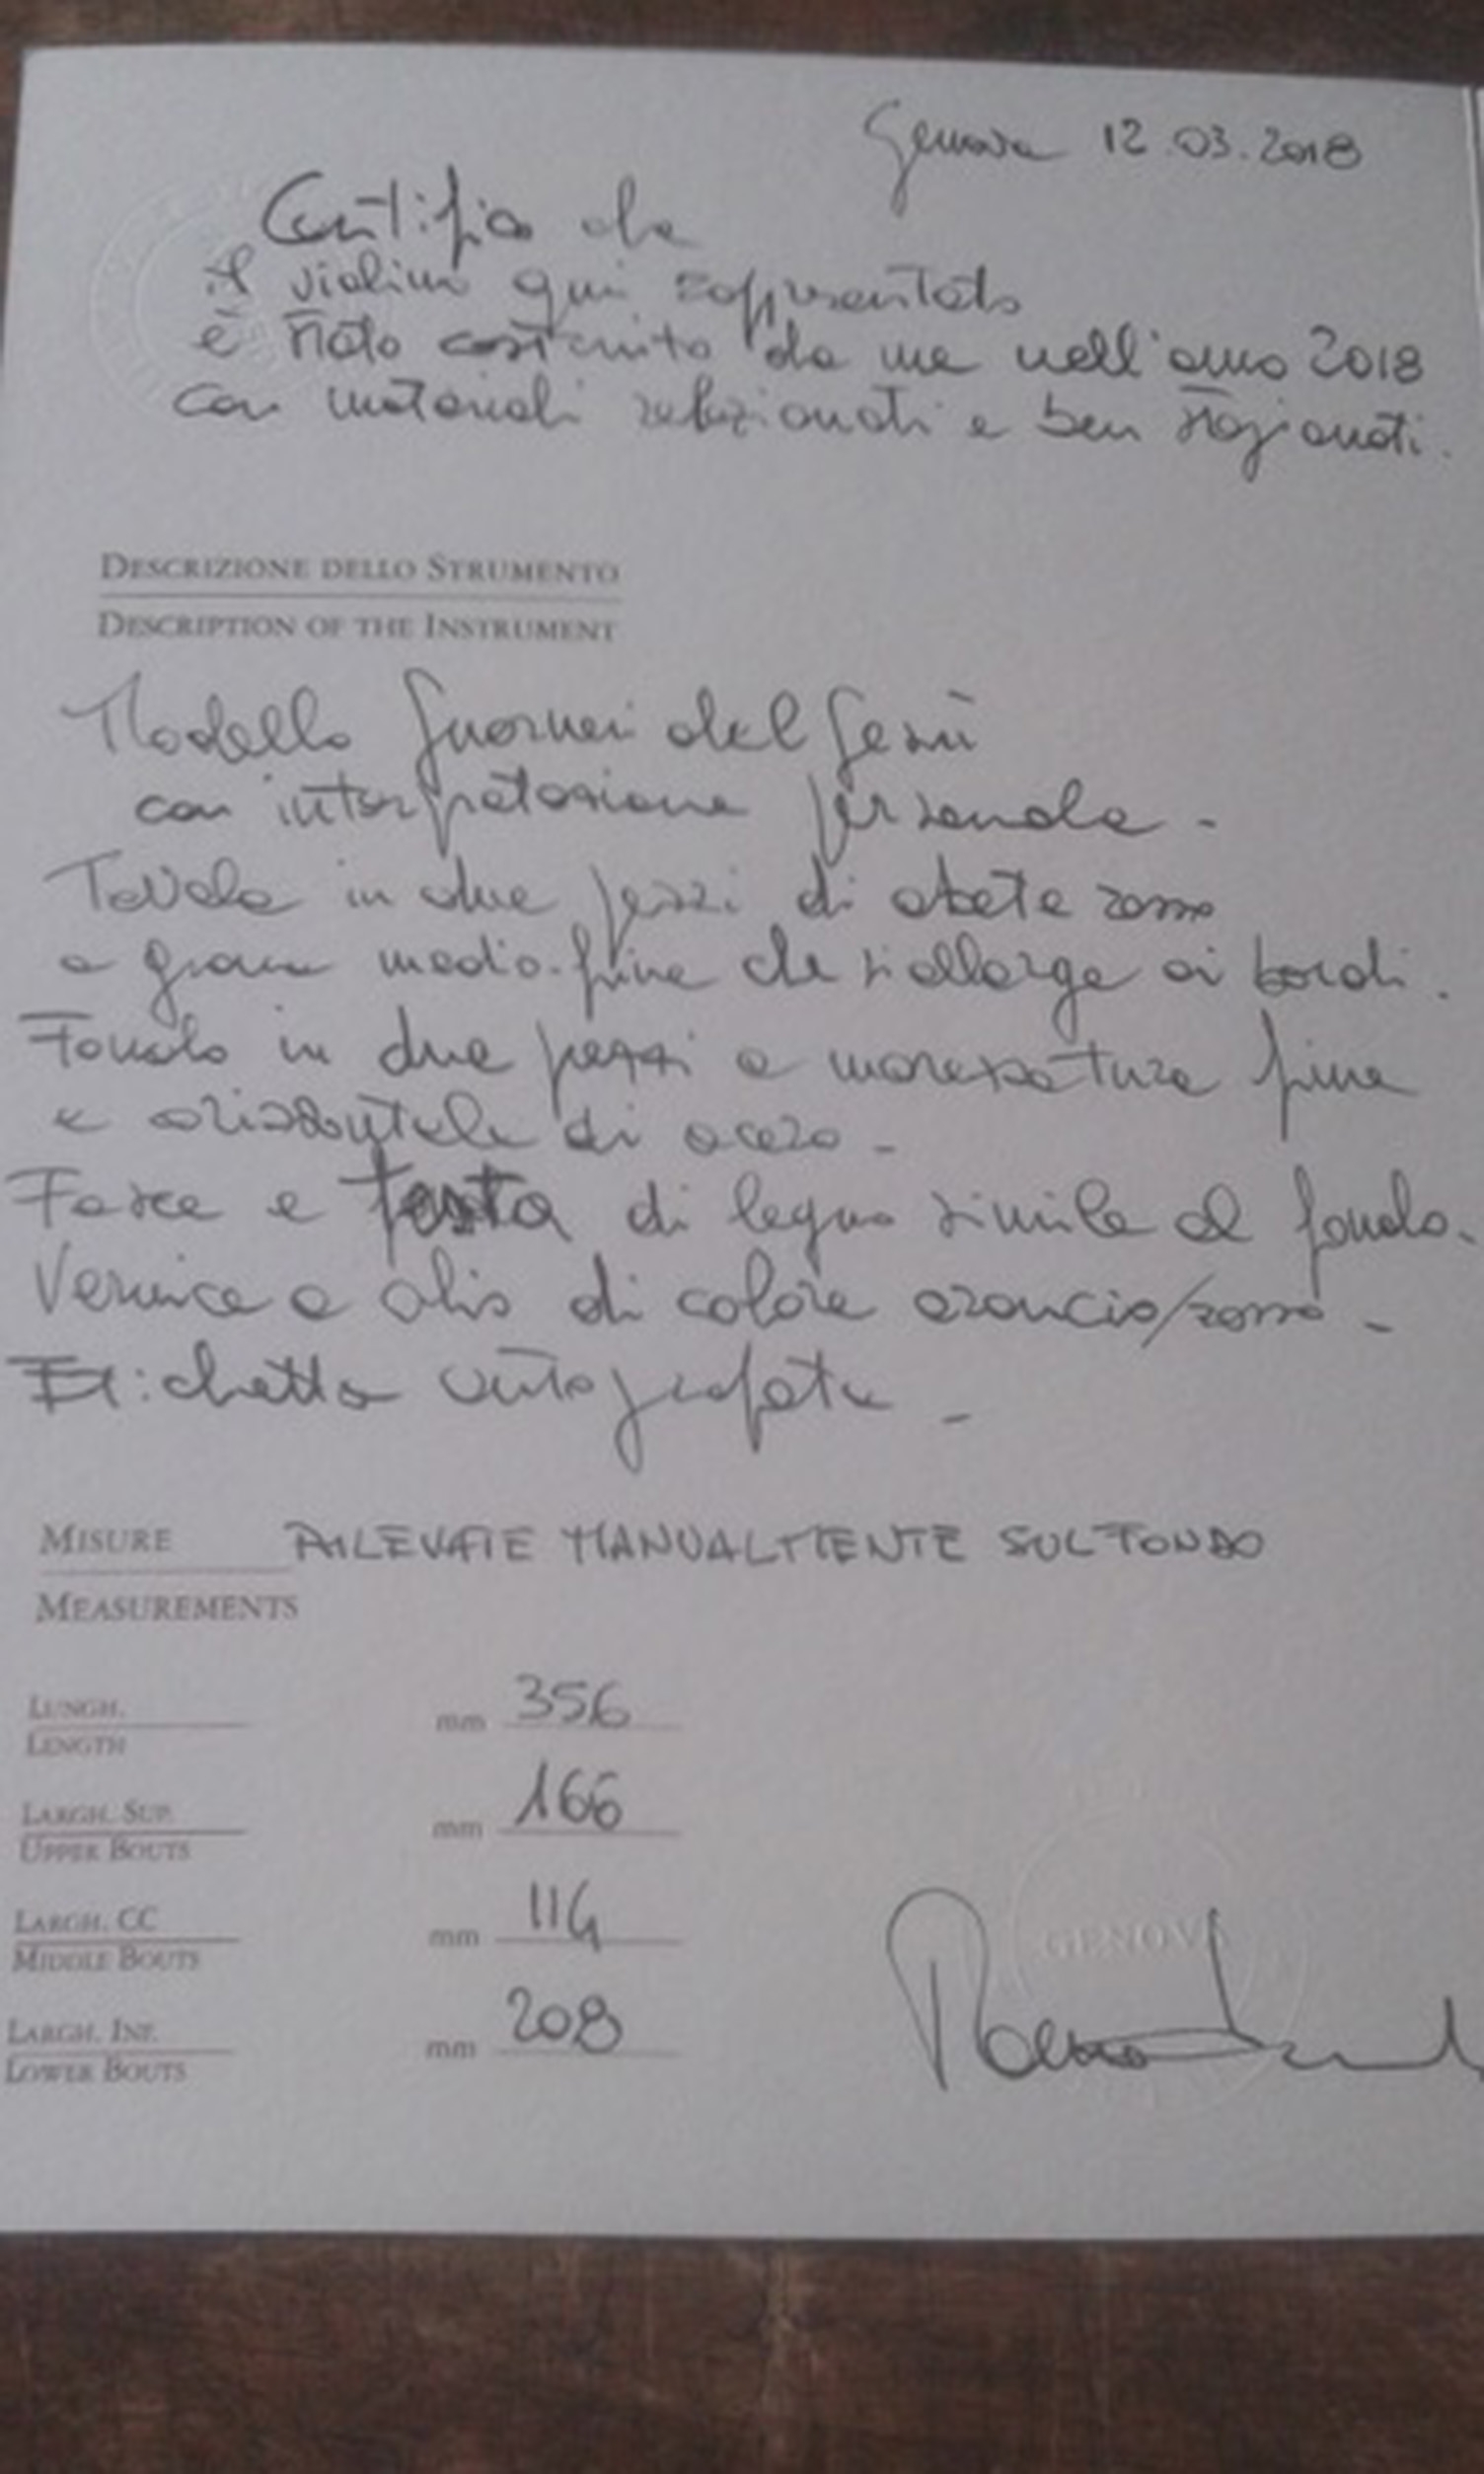 Genova 12.03.2018
Certifico che
il violino qui rappresentato
è stato costruito da me nell'anno 2018
con materiali selezionati e ben stagionati.
DESCRIZIONE DELLO STRUMENTO
DESCRIPTION OF THE INSTRUMENT
Modello Guarneri del Gesù
con interpretazione personale -
Tavola in due pezzi di abete rosso
a grana medio-fine che si allarga ai bordi.
Fondo in due pezzi a marezzatura fine
e orizzontale di acero -
Fasce e testa di legno simile al fondo.
Vernice a olio di colore arancio/rosso -
Etichetta autografata -
MISURE RILEVATE MANUALMENTE SUL FONDO
MEASUREMENTS
LUNGH. mm 356
LENGTH
LARGH. SUP. mm 166
UPPER BOUTS
LARGH. CC mm 114
MIDDLE BOUTS
GENOVA
LARGH. INF. mm 208
LOWER BOUTS